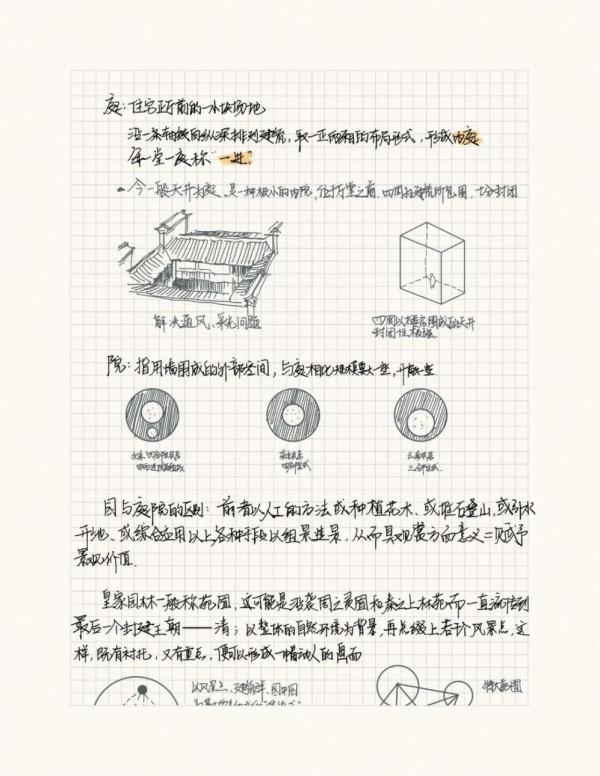 庭：住宅正厅前的一小块场地
沿一条轴线向纵深排列建筑，取一正两厢的布局形式，形成内庭
每一堂一庭称"一进"
今一般天井为庭、是一种极小的内院，位于厅堂之前，四周为建筑所包围，十分封闭
解决通风、采光问题
四周以楼房围成的天井
封闭性极强
院：指用墙围成的外部空间，与庭相比规模更大一些，开敞一些
园与庭院的区别：前者以人工的方法或种植花木、或堆石叠山、或引水
开池、或综合应用以上各种手段以组景造景，从而具观赏方面意义二赋予
景观价值
皇家园林一般称苑囿，这可能是沿袭周之灵囿和秦之上林苑而一直流传到
最后一个封建王朝——清；以整体的自然环境为背景，再点缀上若干个风景点，这
样，既有衬托，又有重点，便可以形成一幅动人的画面
以风景点、建筑群、园中园